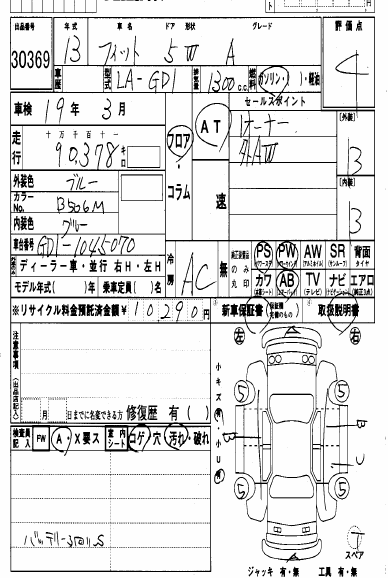 出品番号 年式 車名 ドア 形状 グレード 評価点
30369 13 フィット 5 W A 4
車歴 型式 LA-GD1 排気量 1300 c.c. 燃料 ガソリン・ ・軽油
車検 19年 3月 セールスポイント
走行 十万千百十一 フロア・コラム AT ワンオーナー [外装]
90,378 キロ B
外装色 ブルー
カラーNo. B506M 速 [内装]
内装色 ブルー B
車台番号 GD1-1045070
冷房 AC 無 純正装備品のみ丸印 PS (パワーステ) PW (パワーウィンド) AW (アルミホイル) SR (サンルーフ) 背面タイヤ
ディーラー車・並行 右H・左H
カワ (本革シート) AB (エアーバック) TV (テレビ) ナビ (ナビゲーション) エアロ (純正3点)
モデル年式( )年 乗車定員( )名
※リサイクル料金預託済金額 ¥10,290円 新車保証書 (保証継 交換のもの) 取扱説明書
注意事項 (出品店記入) 左 右
小キズ 有・小U 有
月 日までに名変できる方 修復歴 有( )
検査員記入 FW A・X要ス 室内シート コゲ・穴 汚れ・破れ
5 5
B B
5 5
スペア
ジャッキ 有・無 工具 有・無